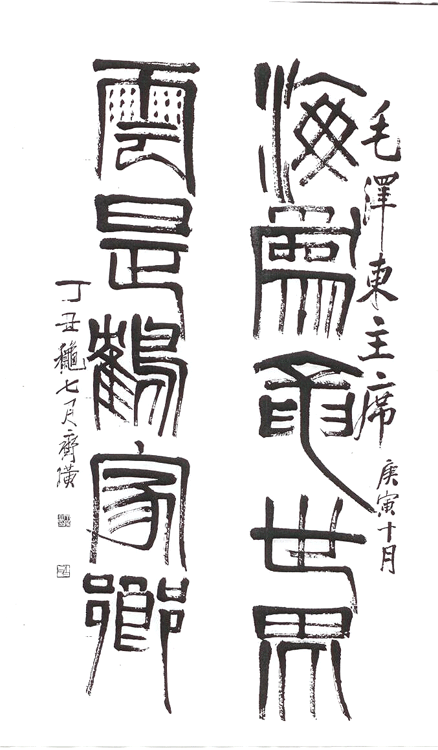 毛澤東主席
庚寅十月
海爲龜世界
雲是鶴家鄉
丁丑龝七月齊璜